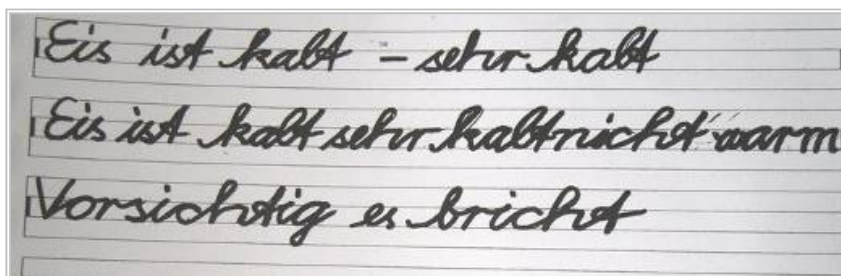 Eis ist kalt - sehr kalt
Eis ist kalt sehr kalt nicht warm
Vorsichtig es bricht